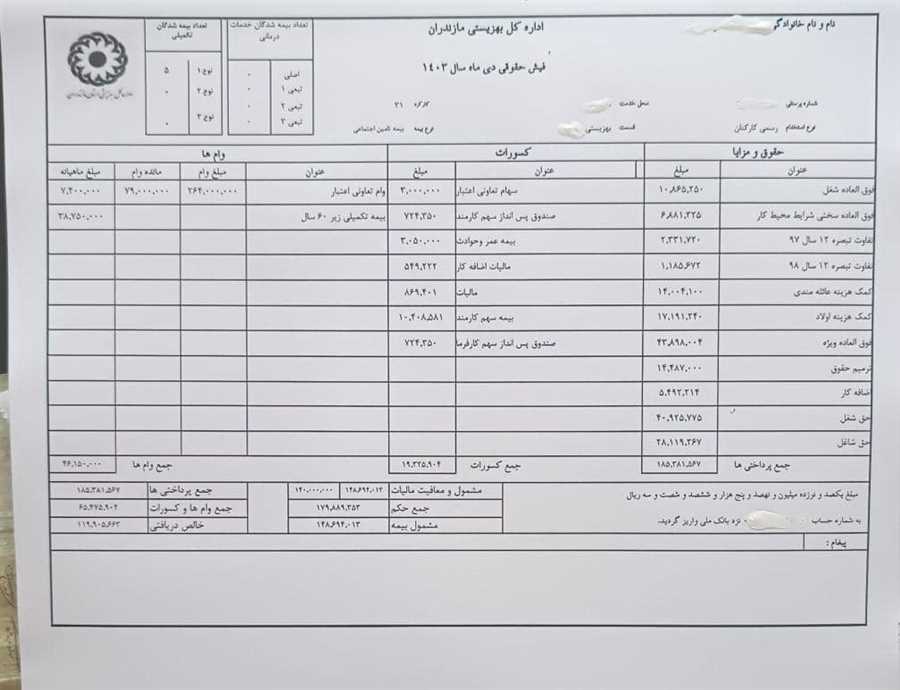 اداره کل بهزیستی مازندران
نام و نام خانوادگی
فیش حقوقی دی ماه سال ۱۴۰۳
شماره پرسنلی
محل خدمت
کارکرد ۳۱
نوع استخدام رسمی کارکنان
قسمت بهزیستی
نوع بیمه بیمه تامین اجتماعی
تعداد بیمه شدگان خدمات درمانی
اصلی ۰
تبعی ۱ ۰
تبعی ۲ ۰
تبعی ۳ ۰
تعداد بیمه شدگان تکمیلی
نوع ۱ ۵
نوع ۲ ۰
نوع ۳ ۰
حقوق و مزایا کسورات وام ها
عنوان مبلغ عنوان مبلغ عنوان مبلغ وام مانده وام مبلغ ماهیانه
فوق العاده شغل ۱۰,۸۶۵,۲۵۰ سهام تعاونی اعتبار ۳,۰۰۰,۰۰۰ وام تعاونی اعتبار ۲۶۴,۰۰۰,۰۰۰ ۷۹,۰۰۰,۰۰۰ ۷,۴۰۰,۰۰۰
فوق العاده سختی شرایط محیط کار ۶,۸۸۱,۳۲۵ صندوق پس انداز سهم کارمند ۷۲۴,۳۵۰ بیمه تکمیلی زیر ۶۰ سال ۳۸,۷۵۰,۰۰۰
تفاوت تبصره ۱۲ سال ۹۷ ۲,۳۳۱,۷۲۰ بیمه عمر وحوادث ۳,۰۵۰,۰۰۰
تفاوت تبصره ۱۲ سال ۹۸ ۱,۱۸۵,۶۷۲ مالیات اضافه کار ۵۴۹,۲۲۲
کمک هزینه عائله مندی ۱۴,۰۰۴,۱۰۰ مالیات ۸۶۹,۴۰۱
کمک هزینه اولاد ۱۷,۱۹۱,۲۴۰ بیمه سهم کارمند ۱۰,۴۰۸,۵۸۱
فوق العاده ویژه ۴۳,۸۹۸,۰۰۴ صندوق پس انداز سهم کارفرما ۷۲۴,۳۵۰
ترمیم حقوق ۱۴,۴۸۷,۰۰۰
اضافه کار ۵,۴۹۲,۲۱۴
حق شغل ۴۰,۹۲۵,۷۷۵
حق شاغل ۲۸,۱۱۹,۲۶۷
جمع پرداختی ها ۱۸۵,۳۸۱,۵۶۷ جمع کسورات ۱۹,۳۲۵,۹۰۴ جمع وام ها ۴۶,۱۵۰,۰۰۰
مبلغ یکصد و نوزده میلیون و نهصد و پنج هزار و ششصد و شصت و سه ریال
به شماره حساب نزد بانک ملی واریز گردید.
مشمول و معافیت مالیات ۱۴۸,۶۹۴,۰۱۳ ۱۴۰,۰۰۰,۰۰۰
جمع حکم ۱۷۹,۸۸۹,۳۵۳
مشمول بیمه ۱۴۸,۶۹۴,۰۱۳
جمع پرداختی ها ۱۸۵,۳۸۱,۵۶۷
جمع وام ها و کسورات ۶۵,۴۷۵,۹۰۴
خالص دریافتی ۱۱۹,۹۰۵,۶۶۳
پیغام :